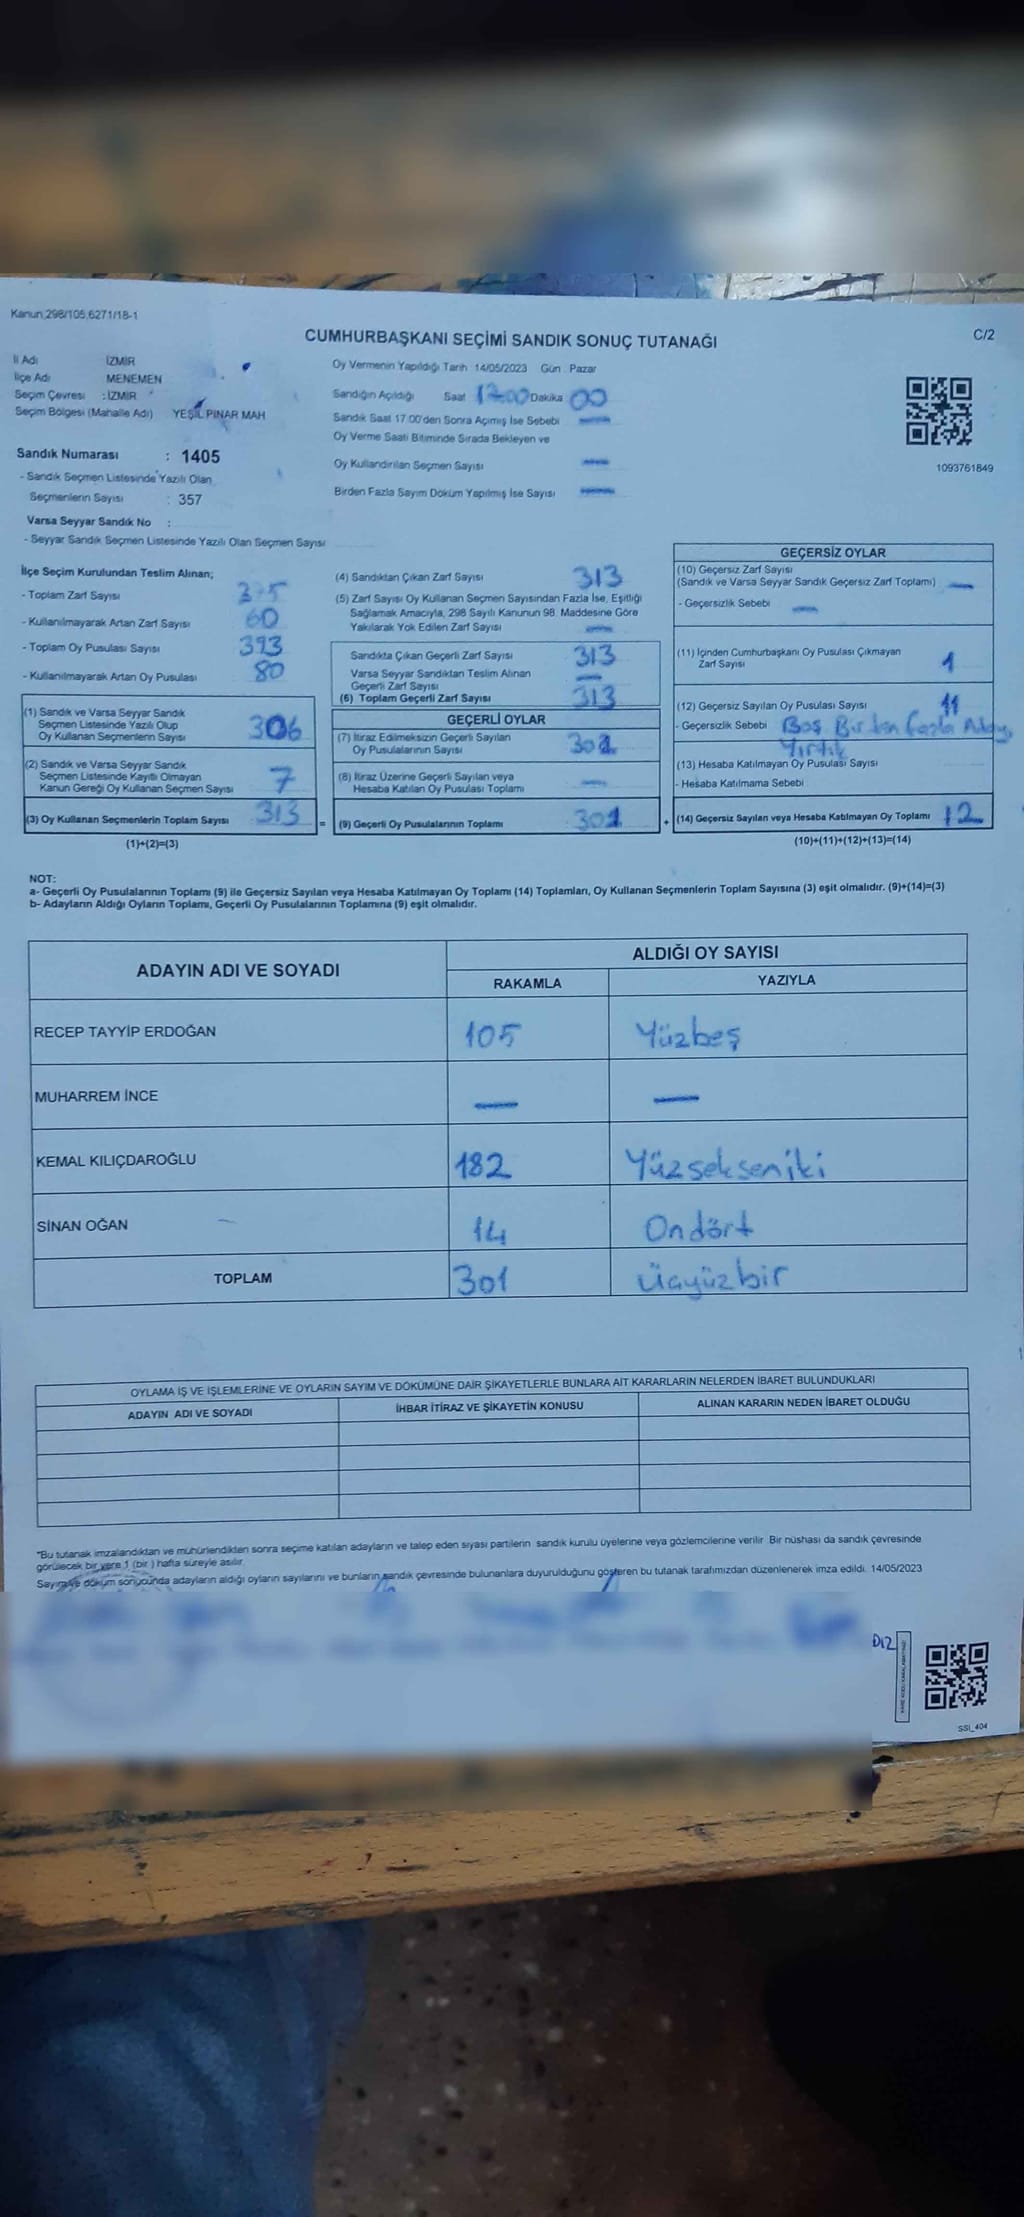 Kanun 298/105,6271/18-1
CUMHURBAŞKANI SEÇİMİ SANDIK SONUÇ TUTANAĞI
C/2
İl Adı İZMİR
İlçe Adı MENEMEN
Seçim Çevresi :İZMİR
Seçim Bölgesi (Mahalle Adı) YEŞİL PINAR MAH
Sandık Numarası : 1405
- Sandık Seçmen Listesinde Yazılı Olan
Seçmenlerin Sayısı : 357
Varsa Seyyar Sandık No :
- Seyyar Sandık Seçmen Listesinde Yazılı Olan Seçmen Sayısı
Oy Vermenin Yapıldığı Tarih 14/05/2023 Gün Pazar
Sandığın Açıldığı Saat 17:00 Dakika 00
Sandık Saat 17:00'den Sonra Açımış İse Sebebi —
Oy Verme Saati Bitiminde Sırada Bekleyen ve
Oy Kullandırılan Seçmen Sayısı —
Birden Fazla Sayım Döküm Yapılmış İse Sayısı —
1093761849
İlçe Seçim Kurulundan Teslim Alınan;
- Toplam Zarf Sayısı
- Kullanılmayarak Artan Zarf Sayısı 60
- Toplam Oy Pusulası Sayısı 393
- Kullanılmayarak Artan Oy Pusulası 80
(1) Sandık ve Varsa Seyyar Sandık
Seçmen Listesinde Yazılı Olup
Oy Kullanan Seçmenlerin Sayısı 306
(2) Sandık ve Varsa Seyyar Sandık
Seçmen Listesinde Kayıtlı Olmayan
Kanun Gereği Oy Kullanan Seçmen Sayısı 7
(3) Oy Kullanan Seçmenlerin Toplam Sayısı 313
(1)+(2)=(3)
=
(4) Sandıktan Çıkan Zarf Sayısı 313
(5) Zarf Sayısı Oy Kullanan Seçmen Sayısından Fazla İse, Eşitliği
Sağlamak Amacıyla, 298 Sayılı Kanunun 98. Maddesine Göre
Yakılarak Yok Edilen Zarf Sayısı —
Sandıkta Çıkan Geçerli Zarf Sayısı 313
Varsa Seyyar Sandıktan Teslim Alınan
Geçerli Zarf Sayısı —
(6) Toplam Geçerli Zarf Sayısı 313
GEÇERLİ OYLAR
(7) İtiraz Edilmeksizin Geçerli Sayılan
Oy Pusulalarının Sayısı 301
(8) İtiraz Üzerine Geçerli Sayılan veya
Hesaba Katılan Oy Pusulası Toplamı —
(9) Geçerli Oy Pusulalarının Toplamı 301
+
GEÇERSİZ OYLAR
(10) Geçersiz Zarf Sayısı
(Sandık ve Varsa Seyyar Sandık Geçersiz Zarf Toplamı) —
- Geçersizlik Sebebi —
(11) İçinden Cumhurbaşkanı Oy Pusulası Çıkmayan
Zarf Sayısı 1
(12) Geçersiz Sayılan Oy Pusulası Sayısı 11
- Geçersizlik Sebebi Boş Birden fazla Aday
Yırtık
(13) Hesaba Katılmayan Oy Pusulası Sayısı
- Hesaba Katılmama Sebebi
(14) Geçersiz Sayılan veya Hesaba Katılmayan Oy Toplamı 12
(10)+(11)+(12)+(13)=(14)
NOT:
a- Geçerli Oy Pusulalarının Toplamı (9) ile Geçersiz Sayılan veya Hesaba Katılmayan Oy Toplamı (14) Toplamları, Oy Kullanan Seçmenlerin Toplam Sayısına (3) eşit olmalıdır. (9)+(14)=(3)
b- Adayların Aldığı Oyların Toplamı, Geçerli Oy Pusulalarının Toplamına (9) eşit olmalıdır.
ADAYIN ADI VE SOYADI
ALDIĞI OY SAYISI
RAKAMLA YAZIYLA
RECEP TAYYİP ERDOĞAN 105 Yüzbeş
MUHARREM İNCE — —
KEMAL KILIÇDAROĞLU 182 Yüzsekseniki
SİNAN OĞAN 14 Ondört
TOPLAM 301 Üçyüzbir
OYLAMA İŞ VE İŞLEMLERİNE VE OYLARIN SAYIM VE DÖKÜMÜNE DAİR ŞİKAYETLERLE BUNLARA AİT KARARLARIN NELERDEN İBARET BULUNDUKLARI
ADAYIN ADI VE SOYADI İHBAR İTİRAZ VE ŞİKAYETİN KONUSU ALINAN KARARIN NEDEN İBARET OLDUĞU
*Bu tutanak imzalandıktan ve mühürlendikten sonra seçime katılan adayların ve talep eden siyasi partilerin sandık kurulu üyelerine veya gözlemcilerine verilir. Bir nüshası da sandık çevresinde
görülecek bir yere 1 (bir ) hafta süreyle asılır.
Sayım ve döküm sonucunda adayların aldığı oyların sayılarını ve bunların sandık çevresinde bulunanlara duyurulduğunu gösteren bu tutanak tarafımızdan düzenlenerek imza edildi. 14/05/2023
D12
SSI_404